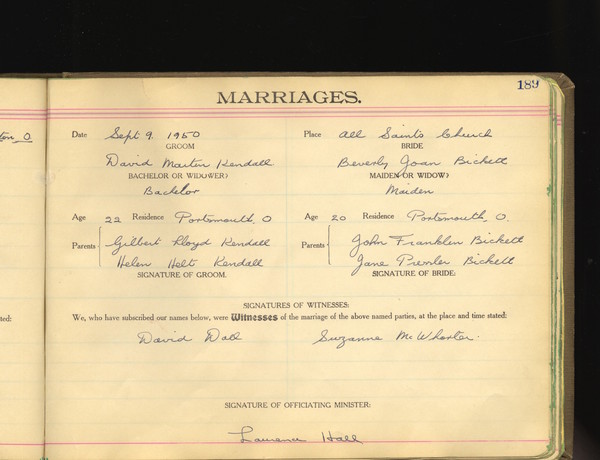 189
MARRIAGES.
Date Sept 9. 1950 Place All Saints Church
GROOM BRIDE
David Martin Kendall Beverly Joan Bickett
BACHELOR OR WIDOWER? MAIDEN OR WIDOW?
Bachelor Maiden
Age 22 Residence Portsmouth, O Age 20 Residence Portsmouth, O.
Parents Gilbert Lloyd Kendall Parents John Franklin Bickett
Helen Holt Kendall Jane Bickett
SIGNATURE OF GROOM. SIGNATURE OF BRIDE:
SIGNATURES OF WITNESSES:
ted: We, who have subscribed our names below, were Witnesses of the marriage of the above named parties, at the place and time stated:
David Dall Suzanne McWhorter.
SIGNATURE OF OFFICIATING MINISTER:
Laurence Hall